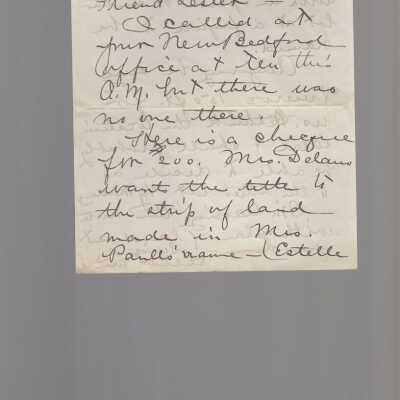 Friend Lester —
I called at
your New Bedford
office at ten this
A.M. but there was
no one there.
Here is a cheque
for $200. Mrs. Delano
want the title to
the strip of land
made in Mrs.
Paulls' name — (Estelle